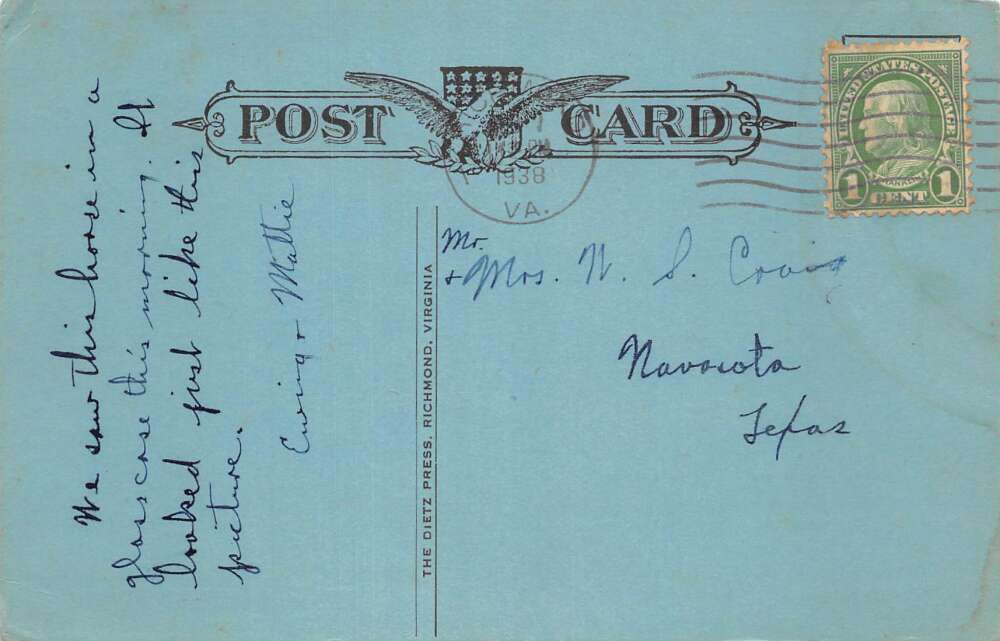 POST CARD
1938
VA.
UNITED STATES POSTAGE
FRANKLIN
1 CENT 1
We saw this horse in a
glass case this morning. It
looked just like this
picture.
Ewing & Mattie
THE DIETZ PRESS, RICHMOND, VIRGINIA
Mr.
& Mrs. W. S. Craig
Navasota
Texas